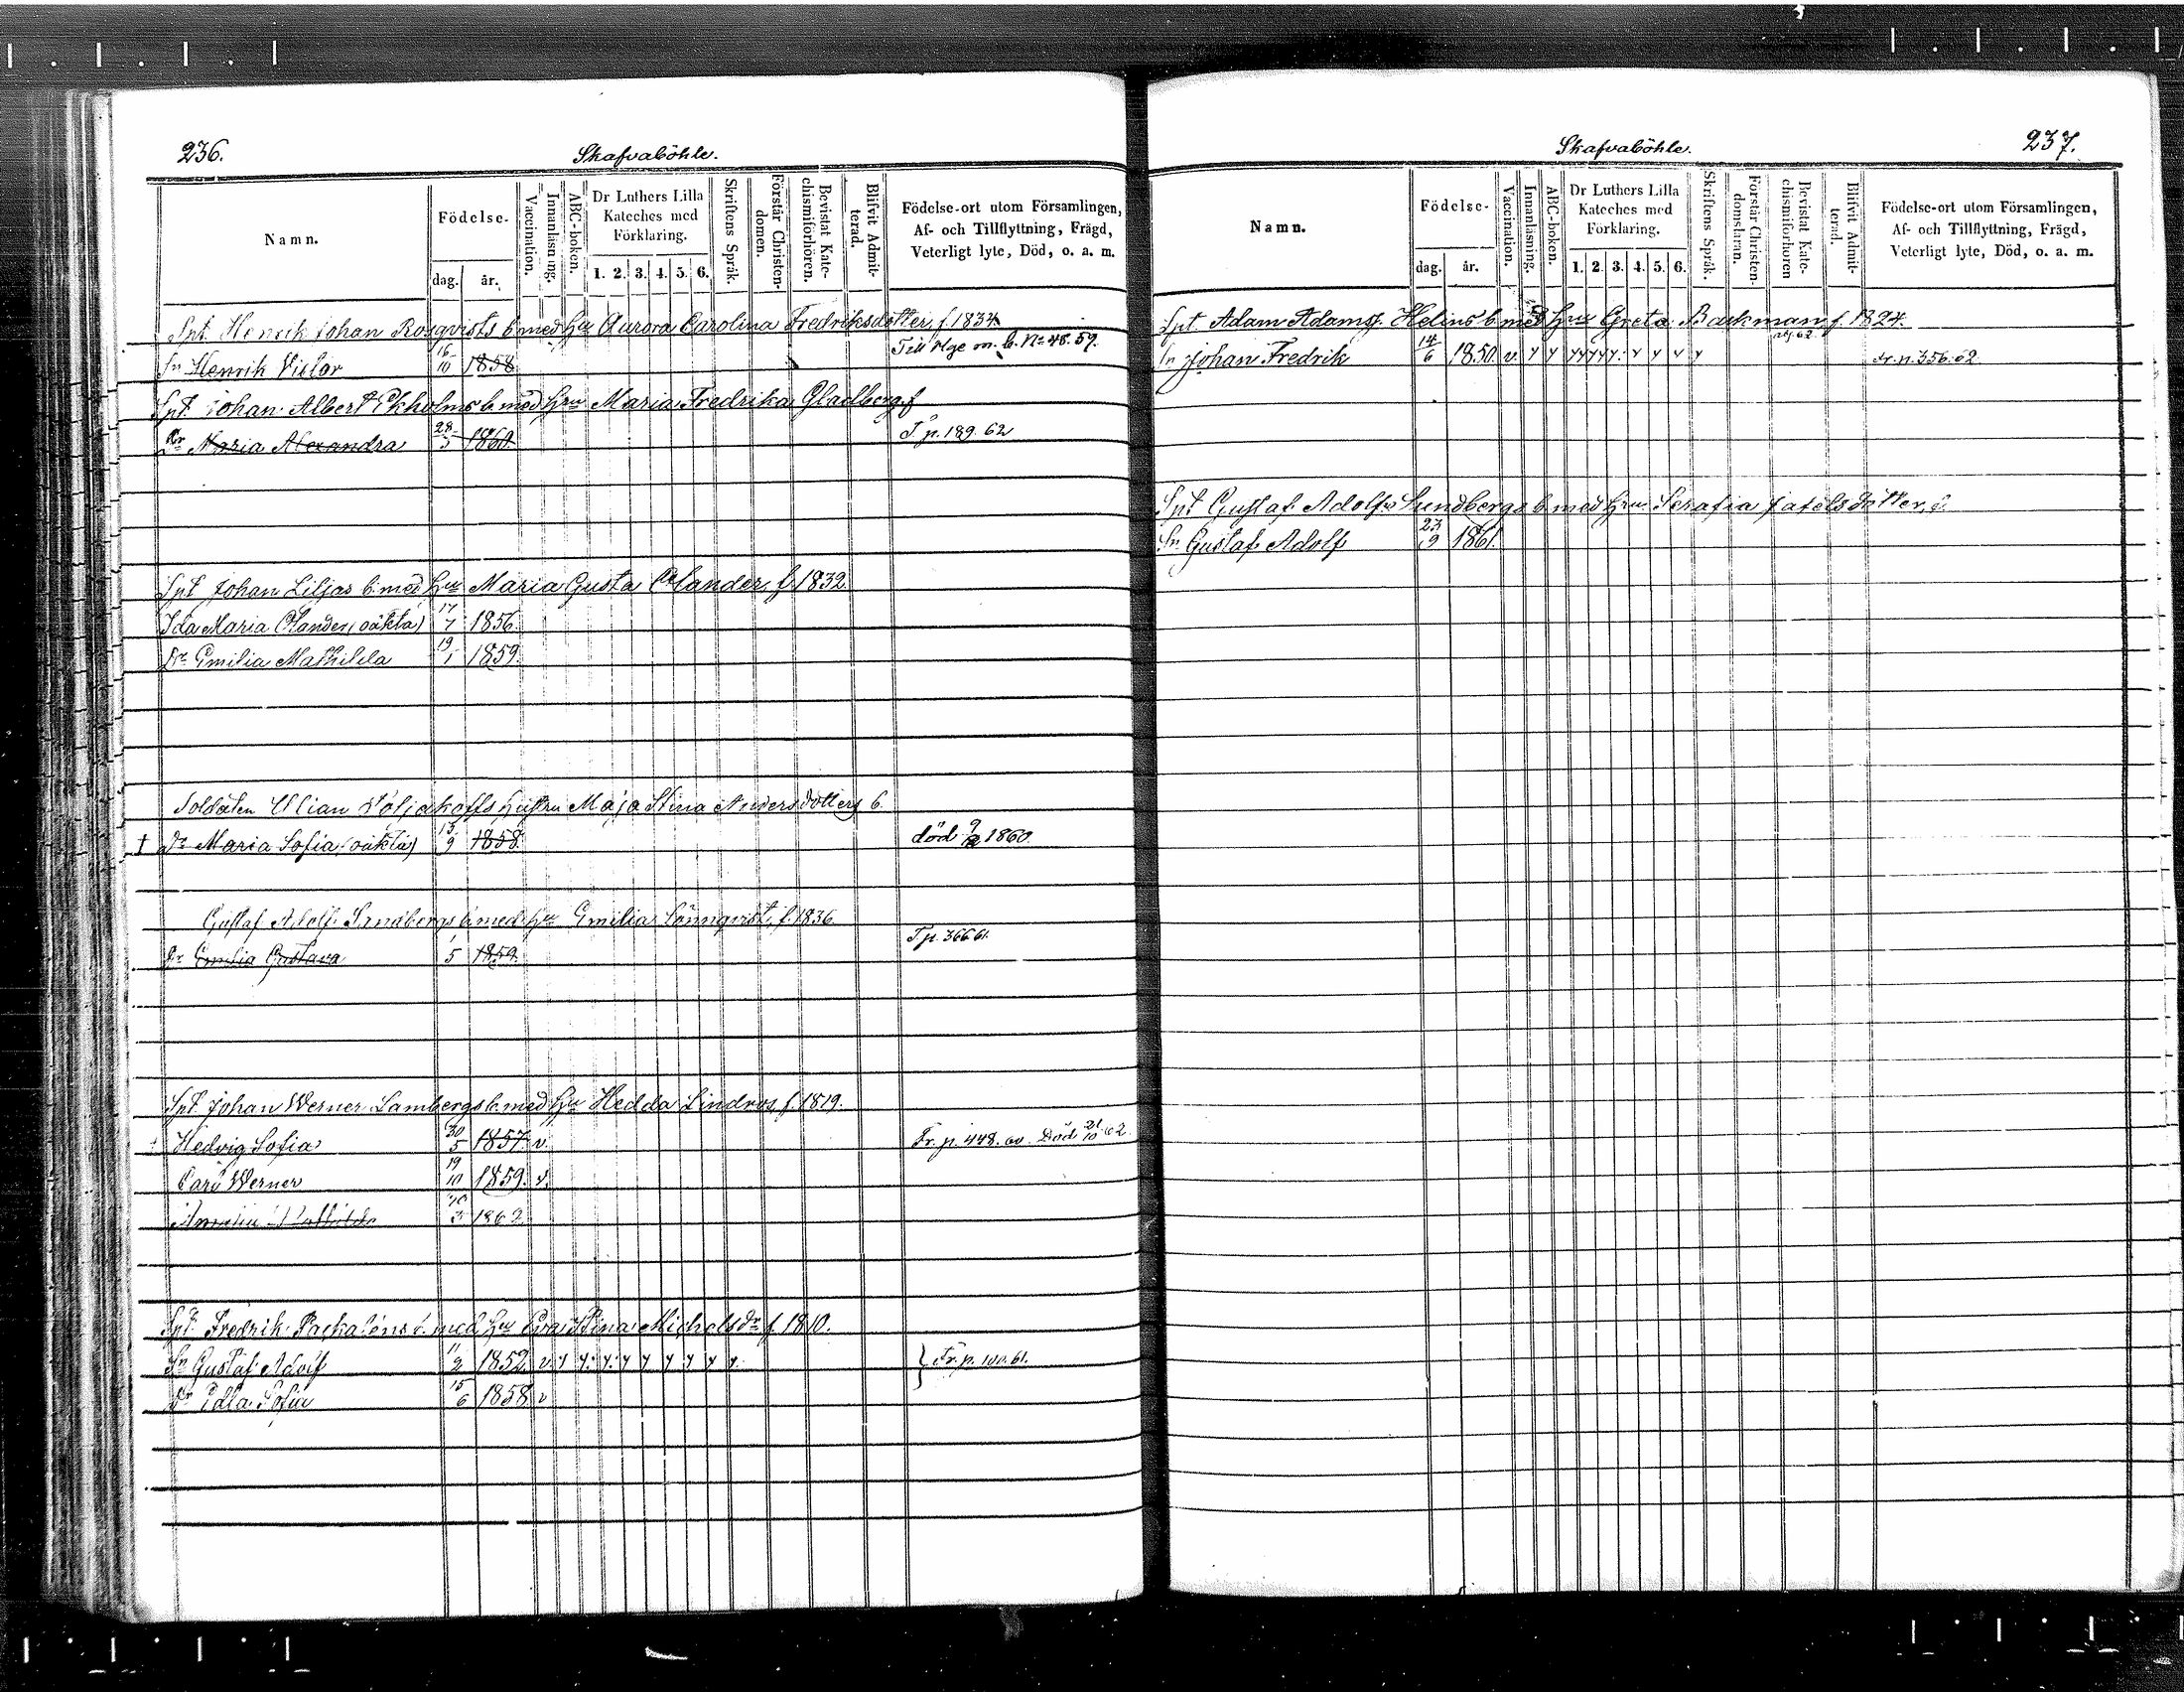 236.
Skafvaböhle.
Namn.
Födelse-
dag. år.
Vaccination.
Innanläsning.
ABC-boken.
Dr Luthers Lilla
Kateches med
Förklaring.
1. 2. 3. 4. 5. 6.
Skriftens Språk.
Förstår Christen-
domen.
Bevistat Kate-
chismiförhören.
Blifvit Admit-
terad.
Födelse-ort utom Församlingen,
Af- och Tillflyttning, Frägd,
Veterligt lyte, Död, o. a. m.
Spt. Henrik Johan Rosqvists b. med Hru Aurora Carolina Fredriksdotter, f. 1834
Sn Henrik Victor 16/10 1858 Till Hge m. b. No 48. 59.
Spt. Johan Albert Ekholms b. med Hru Maria Fredrika Gladberg f
Dr Maria Alexandra 28/3 1860. T p. 189. 62
Spt Johan Liljas b. med Hru Maria Gusta Olander, f. 1832.
Ida Maria Olander (oäkta) 17/7 1856.
Dr Emilia Mathilda 19/1 1859.
Soldaten Ulian Holjakoffs hustru Maja Stina Andersdotters b.
† Dr Maria Sofia (oäkta) 13/9 1858. död 1860.
Gustaf Adolf Sandbergs b. med Hru Emilia Lönnqvist, f. 1836.
Dr Emilia Gustava 1/5 1859. T p. 366 61.
Spt. Johan Werner Lambergs b. med Hru Hedda Lindros, f. 1819.
† Hedvig Sofia 30/5 1857. v. Fr. p. 448. 60. Död 21/10 62.
Carl Werner 19/10 1859. v.
1862
Spt. Fredrik Packaléns b. med Hru Eva Stina Michelsdr f. 1810.
Sn Gustaf Adolf 11/2 1852 v. Fr. p. 100. 61.
Dr Edla Sofia 15/6 1858 v
Skafvaböhle.
237.
Namn.
Födelse-
dag. år.
Vaccination.
Innanläsning.
ABC-boken.
Dr Luthers Lilla
Kateches med
Förklaring.
1. 2. 3. 4. 5. 6.
Skriftens Språk.
Förstår Christen-
domsläran.
Bevistat Kate-
chismiförhören
Blifvit Admit-
terad.
Födelse-ort utom Församlingen,
Af- och Tillflyttning, Frägd,
Veterligt lyte, Död, o. a. m.
Spt Adam Adamsf. Helins b. med Hru Greta Backman f. 1824.
Sn Johan Fredrik 14/6 1850. v. fr. p. 356. 62
Spt Gustaf Adolfs Sundbergs b. med Hru Serafia
Sn Gustaf Adolf 23/9 1861.